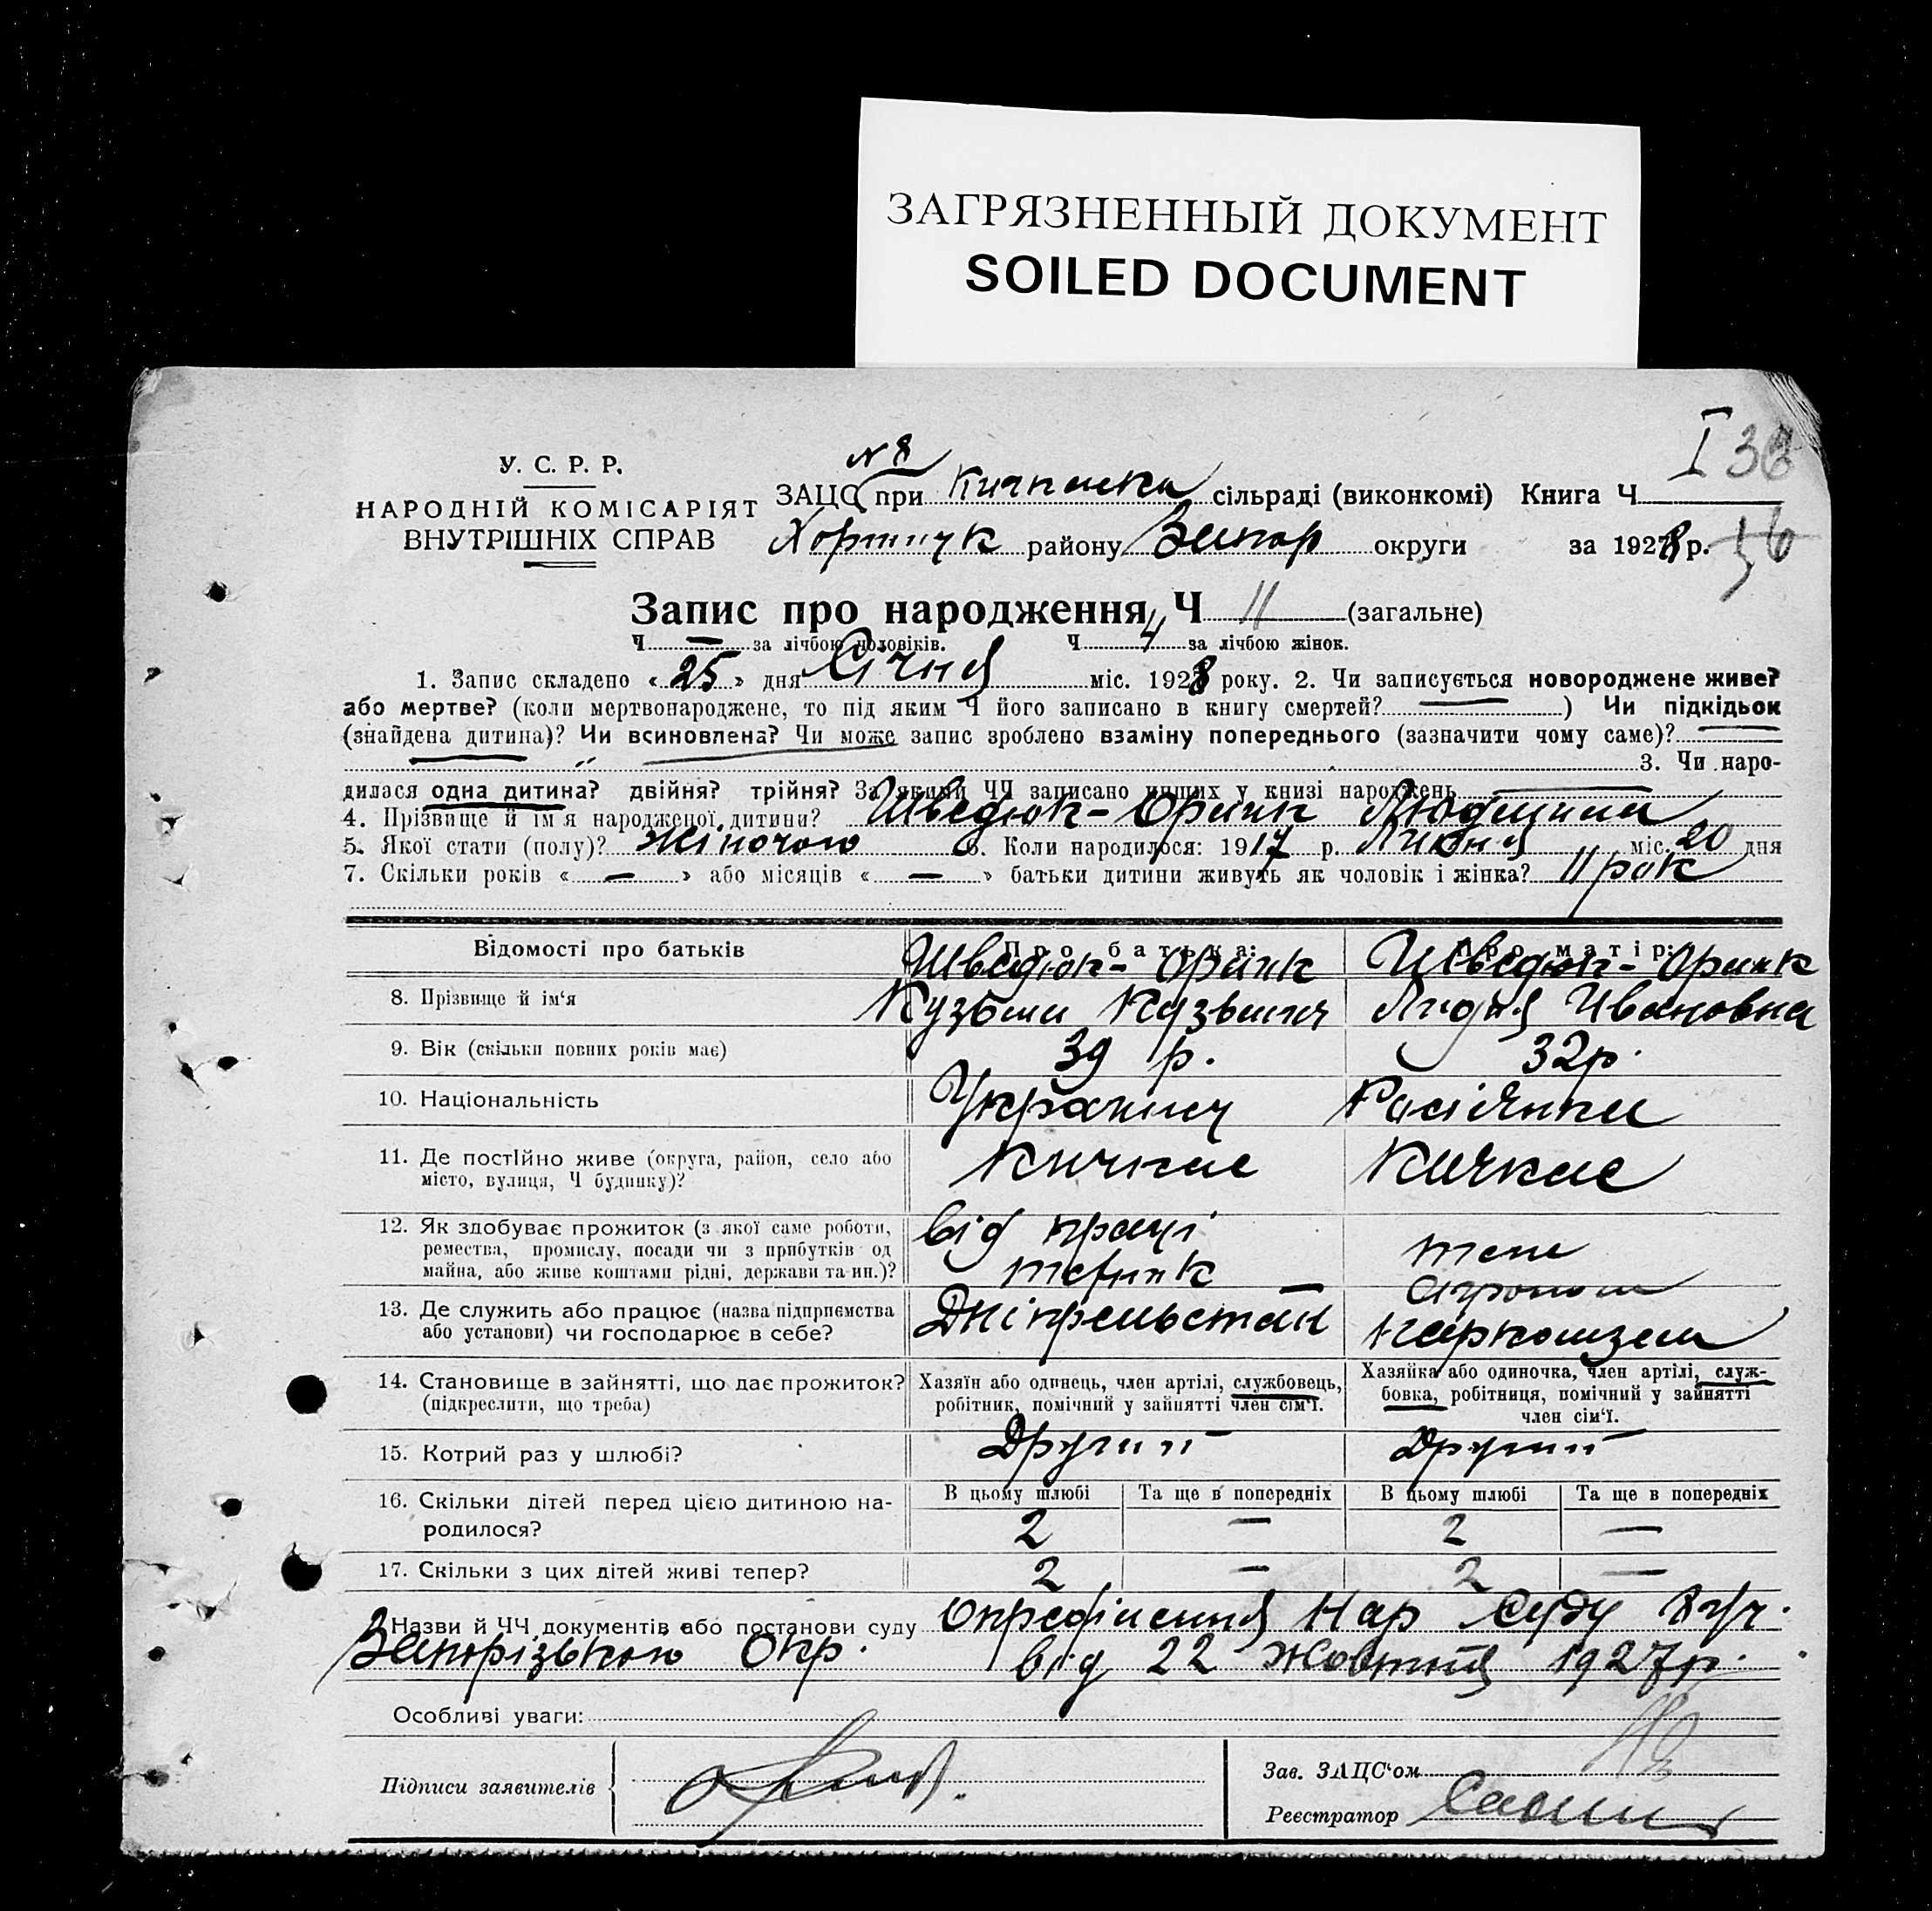 ЗАГРЯЗНЕННЫЙ ДОКУМЕНТ
SOILED DOCUMENT
I 38
У. С. Р. Р.
НАРОДНІЙ КОМІСАРІЯТ
ВНУТРІШНІХ СПРАВ
N 8
ЗАЦС при Кичкаска сільраді (виконкомі) Книга Ч.
Хортицьк району Запор округи за 1928 р.
36
Запис про народження Ч 11 (загальне)
Ч — за лічбою чоловіків. Ч 4 за лічбою жінок.
1. Запис складено « 25 » дня Січня міс. 1928 року. 2. Чи записується новороджене живе?
або мертве? (коли мертвонароджене, то під яким Ч його записано в книгу смертей? — ) Чи підкідьок
(знайдена дитина)? Чи всиновлена? Чи може запис зроблено взаміну попереднього (зазначити чому саме)?
3. Чи наро-
дилася одна дитина? двійня? трійня? За якими ЧЧ записано инших у книзі народжень —
4. Прізвище й ім'я народженої дитини? Шведюк-Орлик Людмила
5. Якої стати (полу)? Жіночою 6. Коли народилося: 1917 р. Липня міс. 20 дня
7. Скільки років « — » або місяців « — » батьки дитини живуть як чоловік і жінка? 11 рок
Відомості про батьків Про батька: Про матір:
Шведюк-Орлик Шведюк-Орлик
8. Прізвище й ім'я Кузьма Кузьмич Лидия Ивановна
9. Вік (скільки повних років має) 39 р. 32 р.
10. Національність Українец Росіянка
11. Де постійно живе (округа, район, село або
місто, вулиця, Ч будинку)? Кичкас Кичкас
12. Як здобуває прожиток (з якої саме роботи,
ремества, промислу, посади чи з прибутків од
майна, або живе коштами рідні, держави та ин.)?
від праці
технік
теж
агроном
13. Де служить або працює (назва підприємства
або установи) чи господарює в себе?
Дніпрельстан Наркомзем
14. Становище в зайнятті, що дає прожиток?
(підкреслити, що треба)
Хазяїн або одинець, член артілі, службовець,
робітник, помічний у зайнятті член сім'ї.
Хазяйка або одиночка, член артілі, служ-
бовка, робітниця, помічний у зайнятті
член сім'ї.
15. Котрий раз у шлюбі? Другий Другий
16. Скільки дітей перед цією дитиною на-
родилося?
В цьому шлюбі Та ще в попередніх В цьому шлюбі Та ще в попередніх
2 — 2 —
17. Скільки з цих дітей живі тепер? 2 — 2 —
Назви й ЧЧ документів або постанови суду Определення Нар Суду
Запорізькою Окр. від 22 Жовтня 1927 р.
Особливі уваги:
Підписи заявителів
Зав. ЗАЦС'ом
Реєстратор